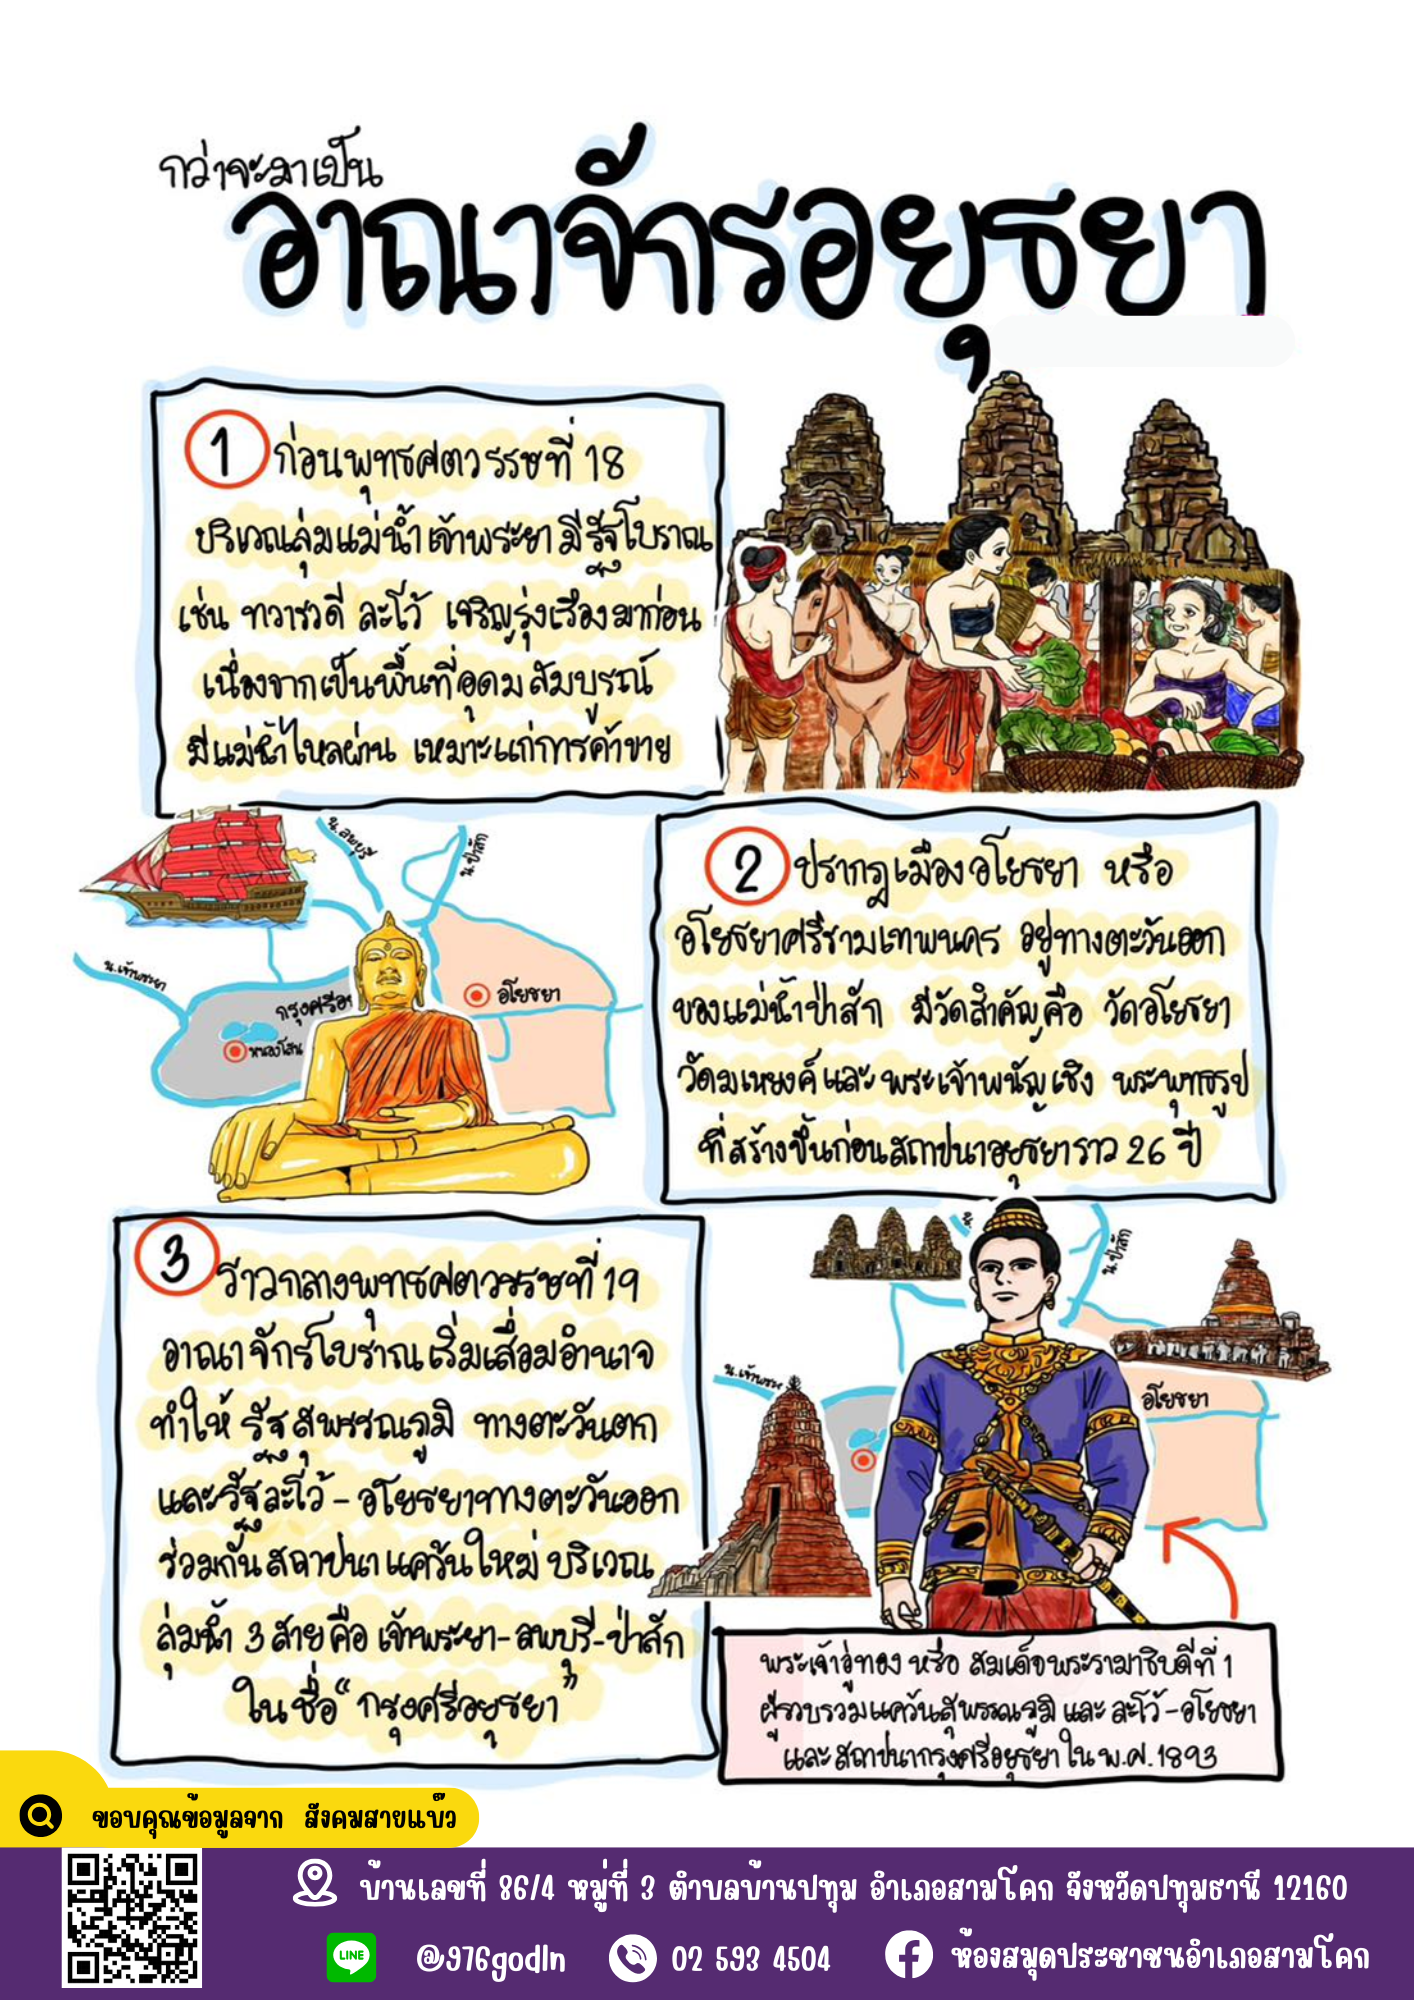 กว่าจะมาเป็น
อาณาจักรอยุธยา
1 ก่อนพุทธศตวรรษที่ 18
บริเวณลุ่มแม่น้ำเจ้าพระยา มีรัฐโบราณ
เช่น ทวารวดี ละโว้ เจริญรุ่งเรืองมาก่อน
เนื่องจากเป็นพื้นที่อุดมสมบูรณ์
มีแม่น้ำไหลผ่าน เหมาะแก่การค้าขาย
น.ลพบุรี
น.ป่าสัก
น.เจ้าพระยา
กรุงศรีอ
หนองโสน
อโยธยา
2 ปรากฎเมืองอโยธยา หรือ
อโยธยาศรีรามเทพนคร อยู่ทางตะวันออก
ของแม่น้ำป่าสัก มีวัดสำคัญคือ วัดอโยธยา
วัดมเหยงค์ และ พระเจ้าพนัญเชิง พระพุทธรูป
ที่สร้างขึ้นก่อนสถาปนาอยุธยาราว 26 ปี
3 ราวกลางพุทธศตวรรษที่ 19
อาณาจักรโบราณเริ่มเสื่อมอำนาจ
ทำให้ รัฐสุพรรณภูมิ ทางตะวันตก
และรัฐละโว้ - อโยธยาทางตะวันออก
ร่วมกันสถาปนาแคว้นใหม่ บริเวณ
ลุ่มน้ำ 3 สายคือ เจ้าพระยา-ลพบุรี-ป่าสัก
ในชื่อ "กรุงศรีอยุธยา"
น.
น.ป่าสัก
น.เจ้าพระย
อโยธยา
พระเจ้าอู่ทอง หรือ สมเด็จพระรามาธิบดีที่ 1
ผู้รวบรวมแคว้นสุพรรณภูมิ และ ละโว้-อโยธยา
และสถาปนากรุงศรีอยุธยาใน พ.ศ.1893
ขอบคุณข้อมูลจาก สังคมสายแบ๊ว
บ้านเลขที่ 86/4 หมู่ที่ 3 ตำบลบ้านปทุม อำเภอสามโคก จังหวัดปทุมธานี 12160
LINE @976godln 02 593 4504 ห้องสมุดประชาชนอำเภอสามโคก